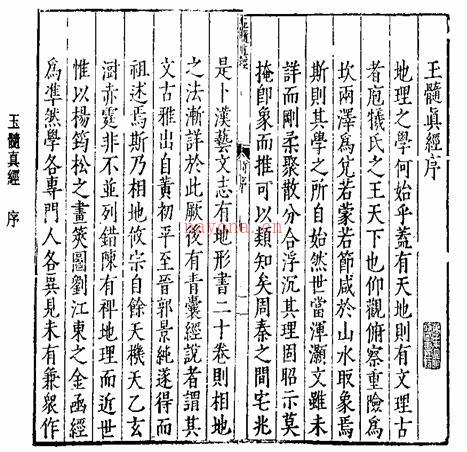 玉髓真經序
地理之學何始乎葢有天地則有文理古
者庖犧氏之王天下也仰觀俯察重險爲
坎兩澤爲兌若蒙若節咸於山水取象焉
斯則其學之所自始然世當渾灝文雖未
詳而剛柔聚散分合浮沉其理固昭示莫
掩卽象而推可以類知矣周秦之間宅兆
是卜漢藝文志有地形書二十卷則相地
之法漸詳於此厥後有青囊經說者謂其
文古雅出自黃初平至晉郭景純遂得而
祖述焉斯乃相地攸宗自餘天機天乙玄
澍赤霆非不並列錯陳有裨地理而近世
惟以楊筠松之畫筴圖劉江東之金函經
爲準然學各專門人各異見未有兼衆作
玉髓真經 序